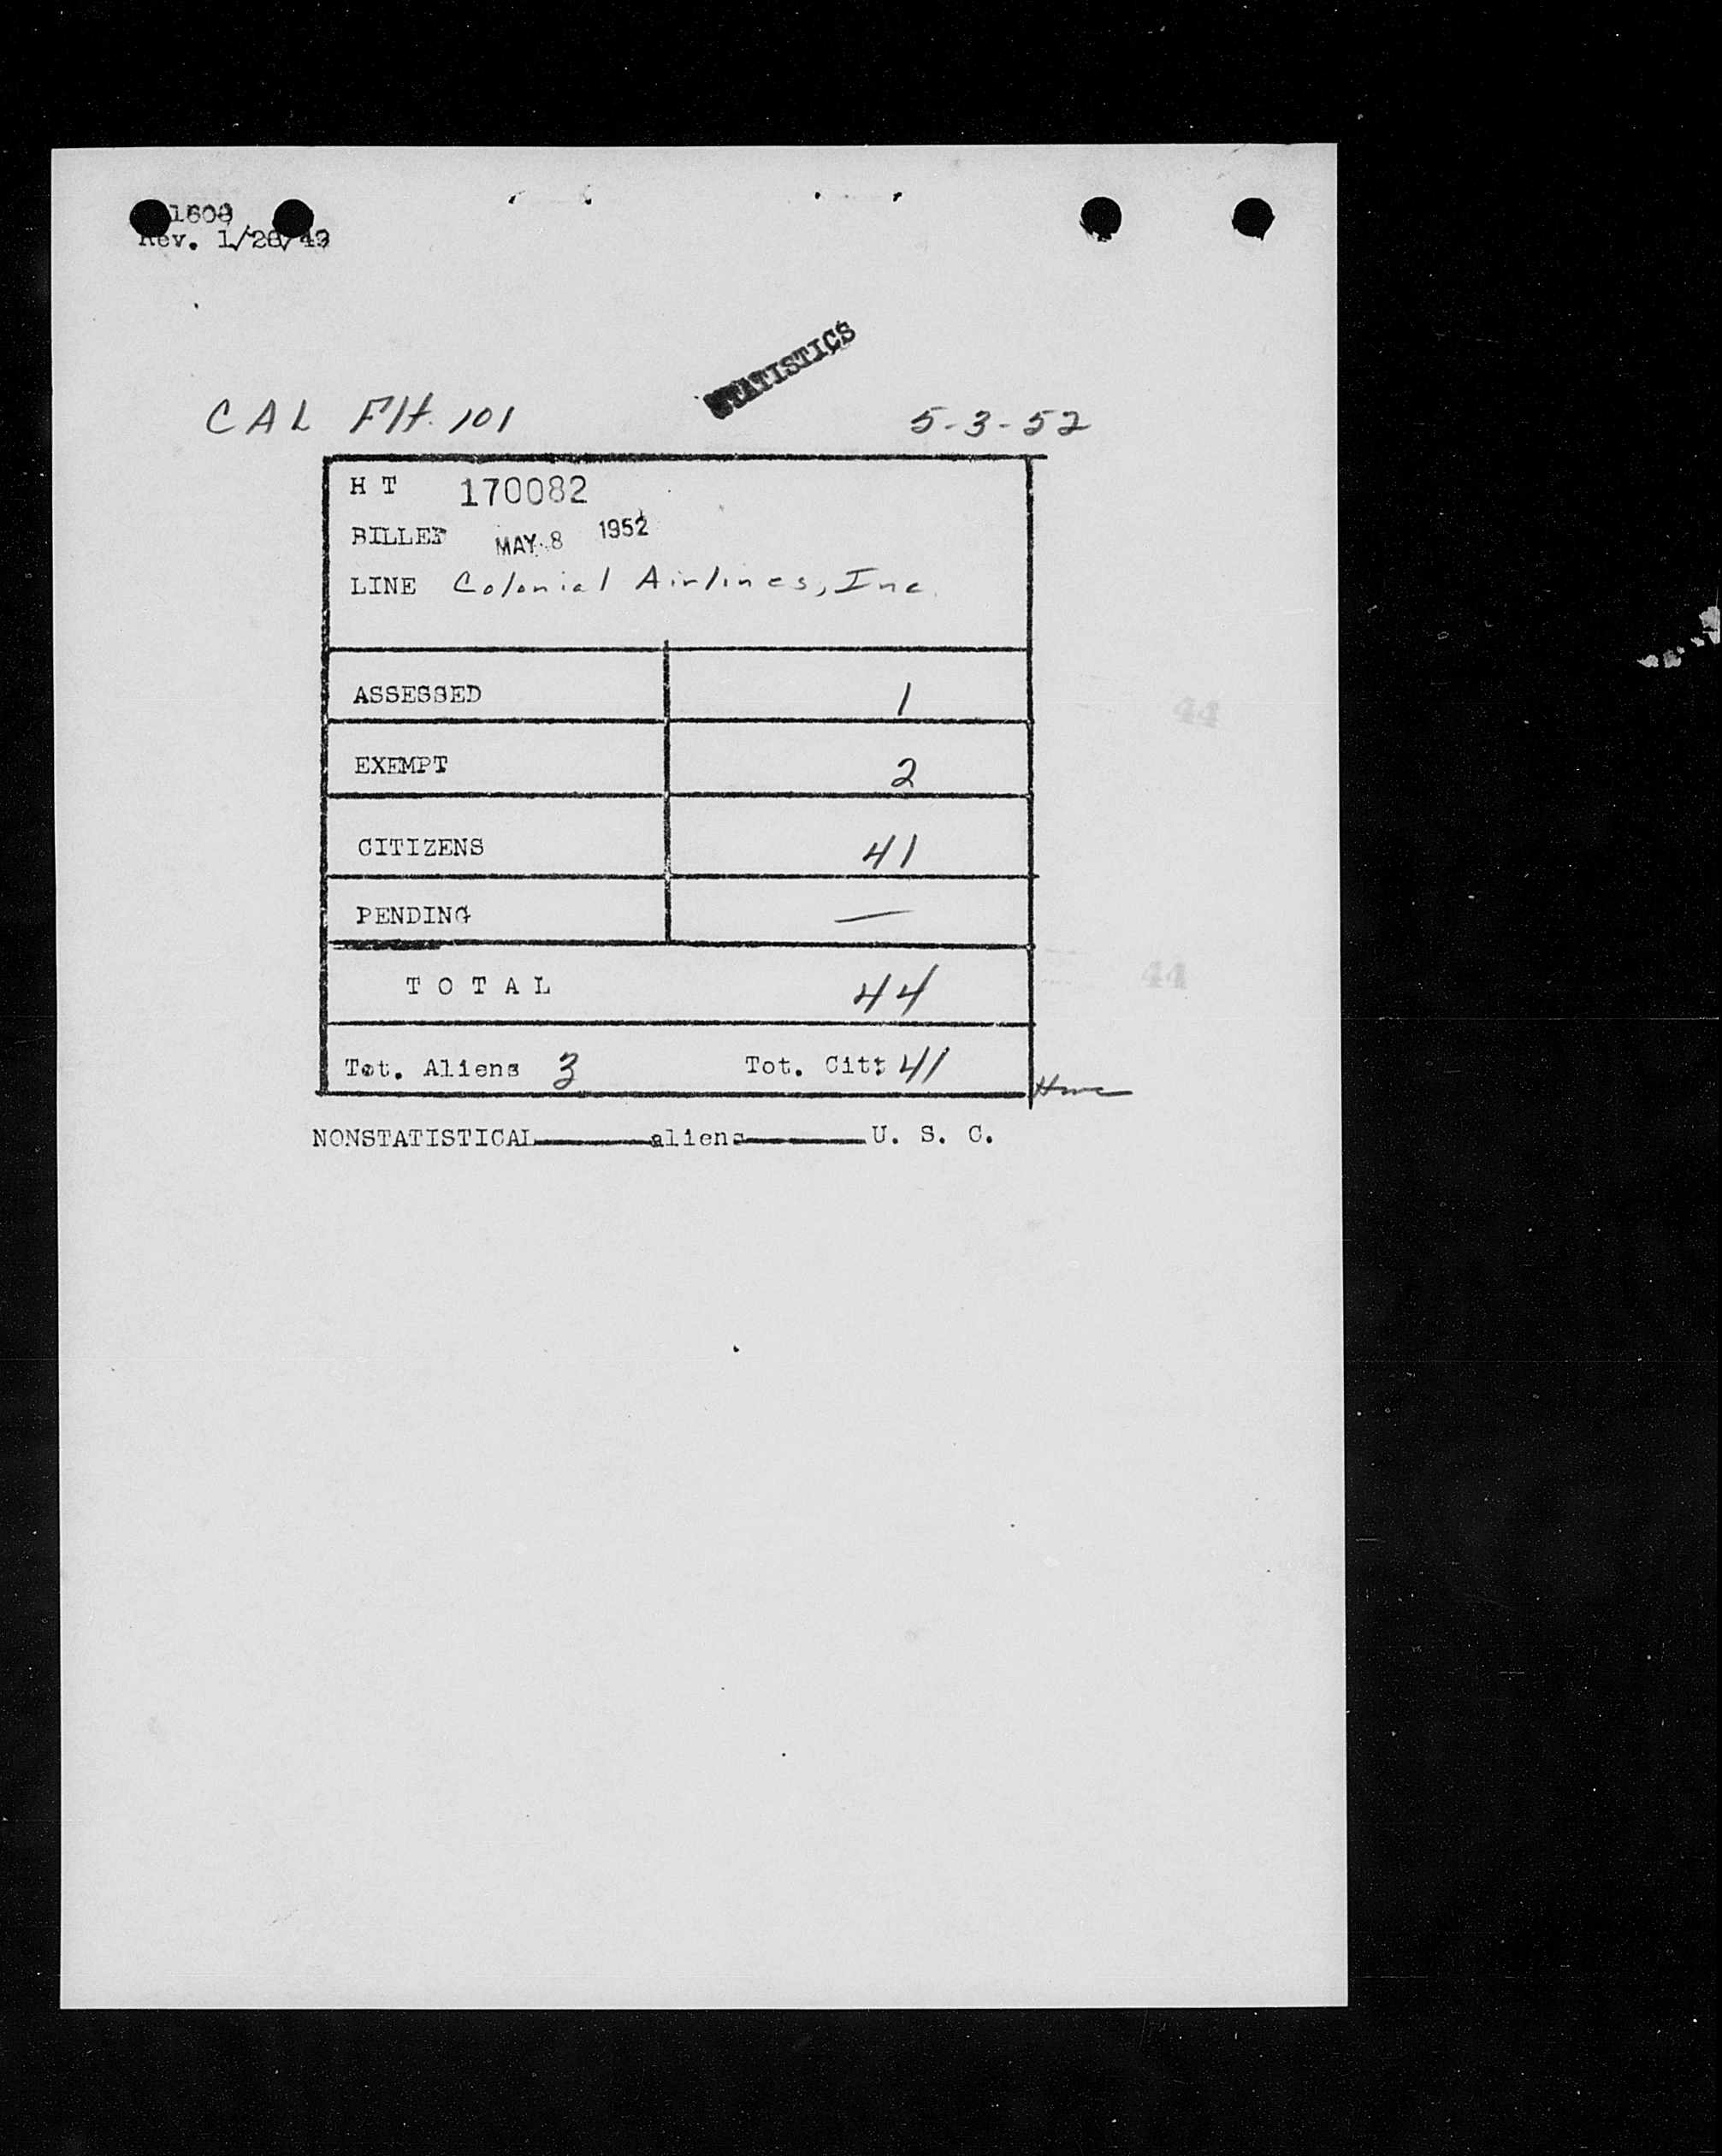 1608
Rev. 1/28/49
STATISTICS
CAL Flt. 101 5-3-52
H T 170082
BILLED MAY 8 1952
LINE Colonial Airlines, Inc.
ASSESSED 1
EXEMPT 2
44
CITIZENS 41
PENDING —
TOTAL 44
44
Tot. Aliens 3 Tot. Cit: 41
NONSTATISTICAL aliens U. S. C.